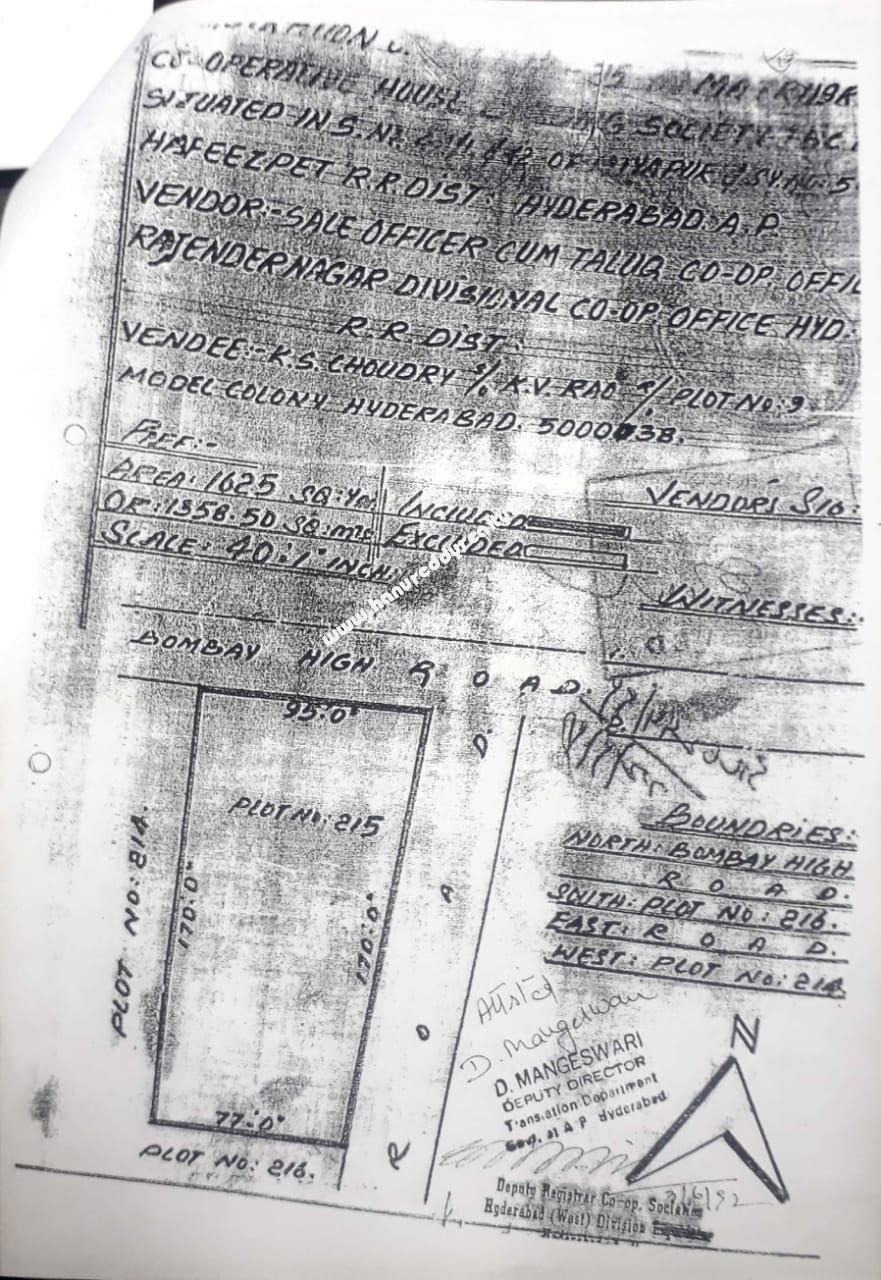 CO-OPERATIVE HOUSE SOCIETY
SITUATED IN S. No.
HAFEEZPET R.R. DIST: HYDERABAD. A.P.
VENDOR:- SALE OFFICER CUM TALUQ CO-OP. OFFI
RAJENDERNAGAR DIVISIONAL CO-OP. OFFICE HYD.
R.R. DIST.
VENDEE:- K.S. CHOUDRY S/o K.V. RAO R/o PLOT No: 9
MODEL COLONY HYDERABAD. 500038.
REF:-
AREA: 1625 SQ: Yds
OR: 1358.50 SQ: mts
SCALE: 40:1" INCH.
INCLUDED
EXCLUDED
VENDOR'S SIG:
WITNESSES:-
1.
2.
BOMBAY HIGH ROAD.
95'.0"
PLOT No: 215
PLOT NO: 214.
170'.0"
170'.0"
77'.0"
PLOT NO: 216.
ROAD.
BOUNDRIES:
NORTH: BOMBAY HIGH
ROAD.
SOUTH: PLOT NO: 216.
EAST: ROAD.
WEST: PLOT NO: 214
Attsted
D. Mangeswari
D. MANGESWARI
DEPUTY DIRECTOR
Translation Department
Govt. of A P Hyderabad
N
Deputy Registrar Co-op. Societies
Hyderabad (West) Division
www.hanureddyrealty